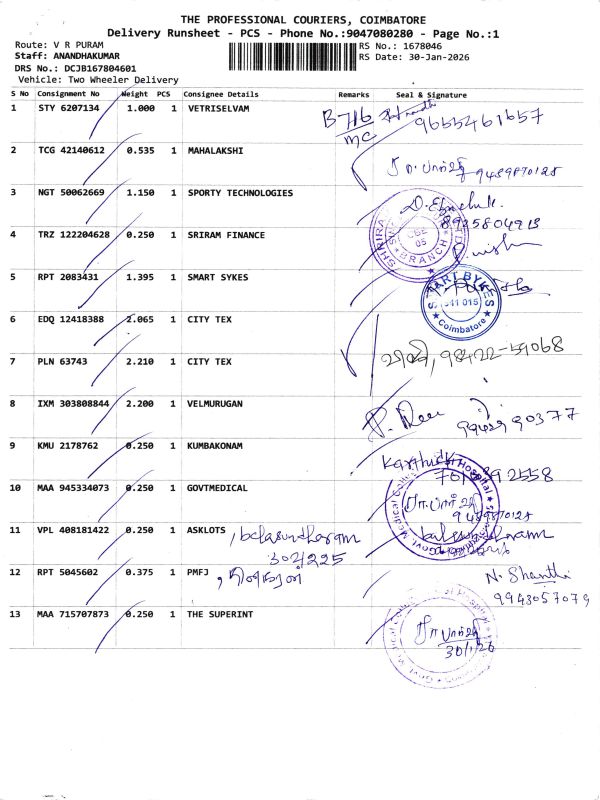 THE PROFESSIONAL COURIERS, COIMBATORE
Delivery Runsheet - PCS - Phone No.:9047080280 - Page No.:1
Route: V R PURAM
RS No.: 1678046
Staff: ANANDHAKUMAR
RS Date: 30-Jan-2026
DRS No.: DCJB167804601
Vehicle: Two Wheeler Delivery
S No Consignment No Weight PCS Consignee Details Remarks Seal & Signature
1 STY 6207134 1.000 1 VETRISELVAM B716 MC 9655461657
2 TCG 42140612 0.535 1 MAHALAKSHI 9489870128
3 NGT 50062669 1.150 1 SPORTY TECHNOLOGIES
4 TRZ 122204628 0.250 1 SRIRAM FINANCE BRANCH
5 RPT 2083431 1.395 1 SMART SYKES Coimbatore
6 EDQ 12418388 2.065 1 CITY TEX
7 PLN 63743 2.210 1 CITY TEX 98422-59068
8 IXM 303808844 2.200 1 VELMURUGAN
9 KMU 2178762 0.250 1 KUMBAKONAM Karthick
10 MAA 945334073 0.250 1 GOVTMEDICAL
11 VPL 408181422 0.250 1 ASKLOTS
12 RPT 5045602 0.375 1 PMFJ N. Shanthi
9943057079
13 MAA 715707873 0.250 1 THE SUPERINT
30/1/26